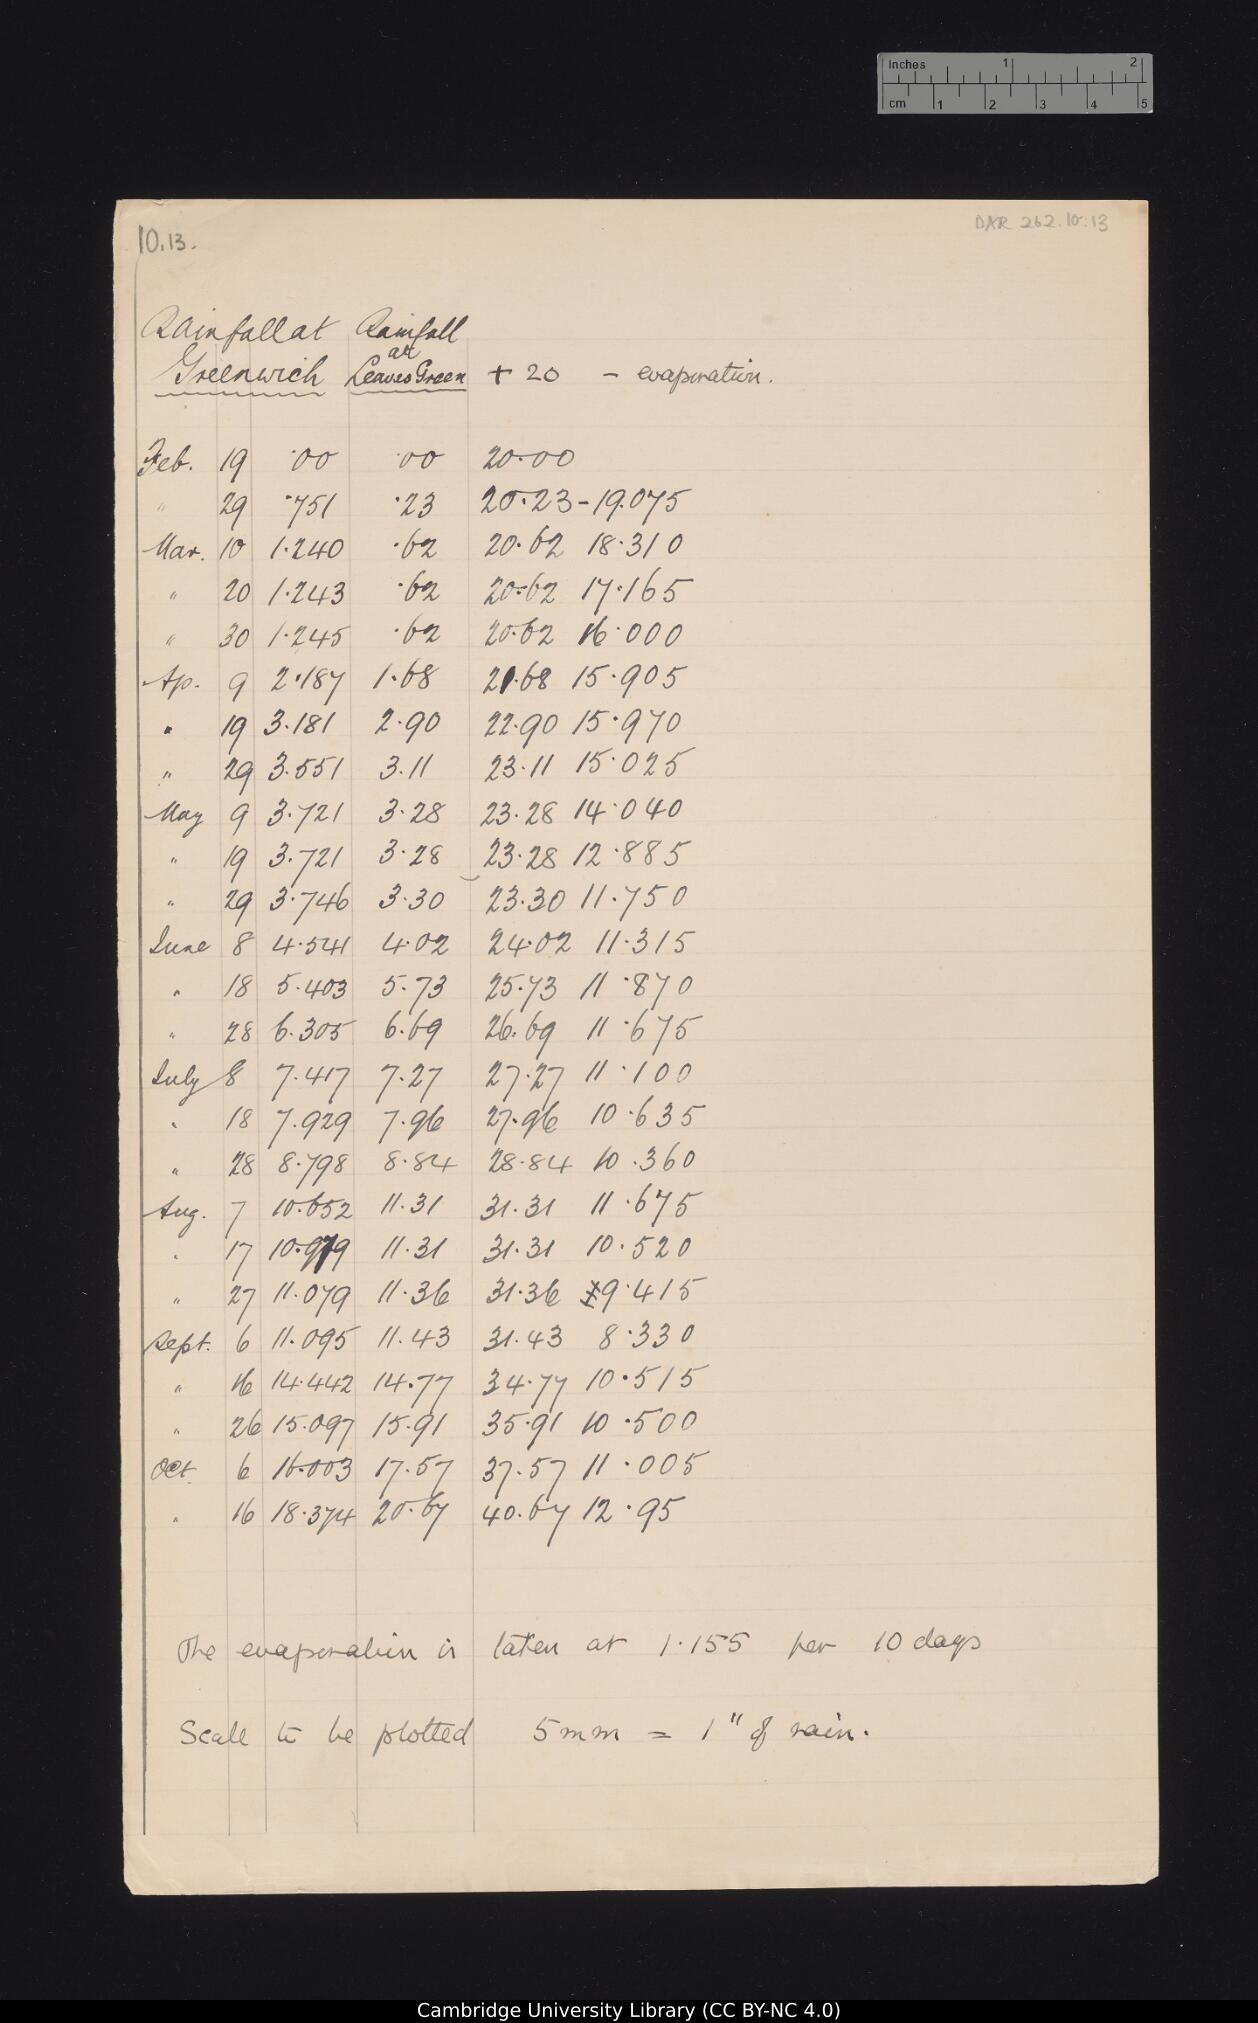 Inches 1 2
cm 1 2 3 4 5
10.13.
DAR 262.10:13
Rainfall at Rainfall
at
Greenwich Leaves Green + 20 - evaporation.
Feb. 19 ·00 ·00 20·00
" 29 ·751 ·23 20·23 - 19.075
Mar. 10 1·240 ·62 20·62 18·310
" 20 1·243 ·62 20·62 17·165
" 30 1·245 ·62 20·62 16·000
Ap. 9 2·187 1·68 21·68 15·905
" 19 3·181 2·90 22·90 15·970
" 29 3·551 3·11 23·11 15·025
May 9 3·721 3·28 23·28 14·040
" 19 3·721 3·28 23·28 12·885
" 29 3·746 3·30 23·30 11·750
June 8 4·541 4·02 24·02 11·315
" 18 5·403 5·73 25·73 11·870
" 28 6·305 6·69 26·69 11·675
July 8 7·417 7·27 27·27 11·100
" 18 7·929 7·96 27·96 10·635
" 28 8·798 8·84 28·84 10·360
Aug. 7 10·652 11·31 31·31 11·675
" 17 10·979 11·31 31·31 10·520
" 27 11·079 11·36 31·36 9·415
Sept. 6 11·095 11·43 31·43 8·330
" 16 14·442 14·77 34·77 10·515
" 26 15·097 15·91 35·91 10·500
Oct. 6 16·003 17·57 37·57 11·005
" 16 18·374 20·67 40·67 12·95
The evaporation is taken at 1·155 per 10 days
Scale to be plotted 5mm = 1" of rain.
Cambridge University Library (CC BY-NC 4.0)